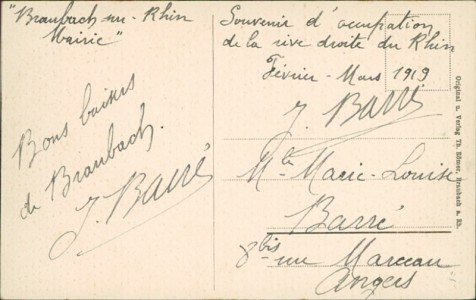 "Braubach sur-Rhin
Mairie"
Bons baisers
de Braubach.
J. Barré
Souvenir d'occupation
de la rive droite du Rhin
Février-Mars 1919
J. Barré
Mlle Marie-Louise
Barré
8bis rue Marceau
Angers
Original u. Verlag Th. Römer, Braubach a. Rh.